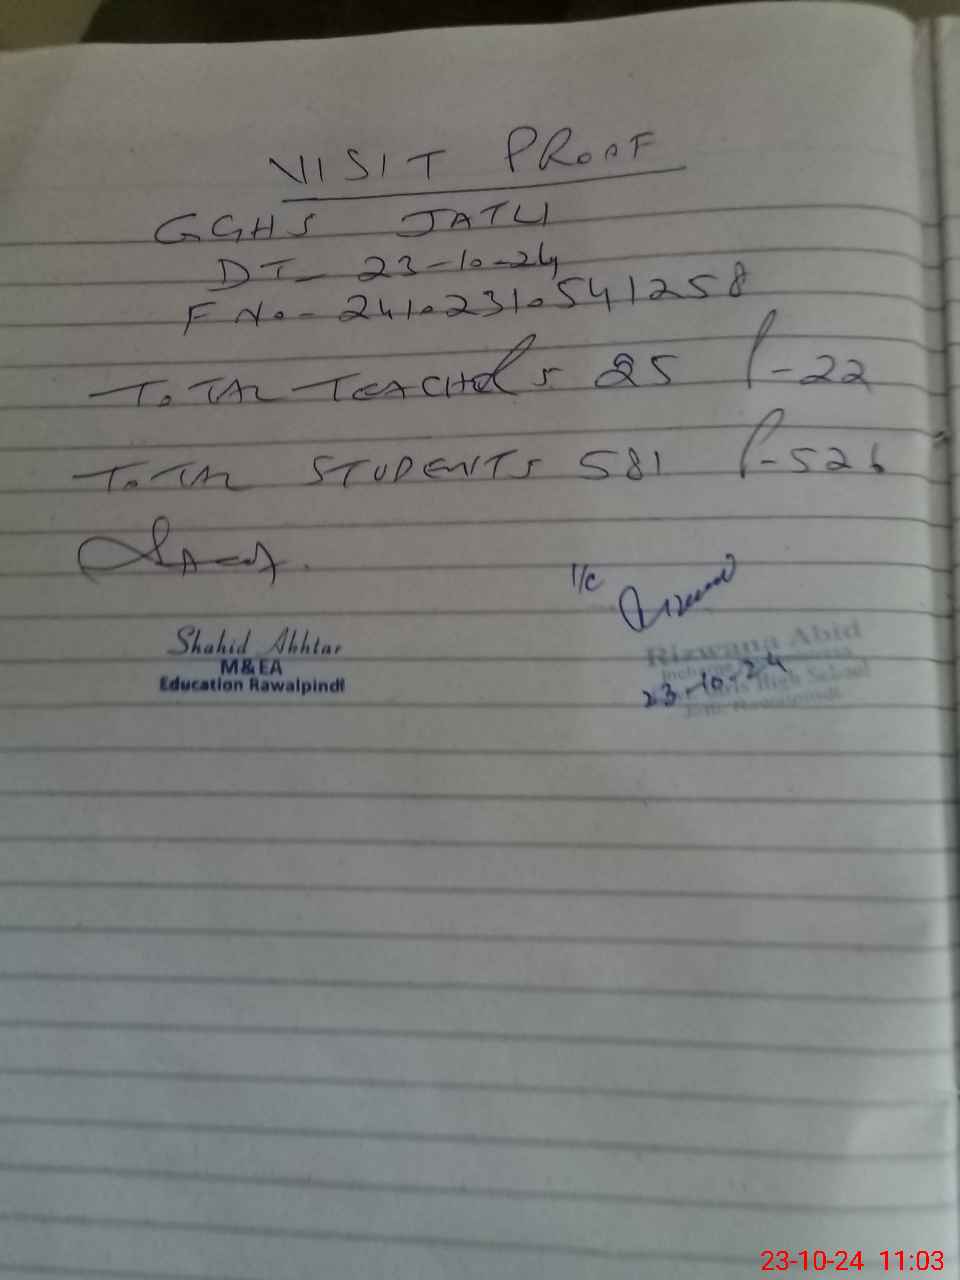 VISIT PROOF
GGHS JATLI
DT- 23-10-24
F No- 2410231054 1258
TOTAL TEACHERS 25 P-22
TOTAL STUDENTS 581 P-526
I/C
Shahid Akhtar
M&EA
Education Rawalpindi
Rizwana Abid
23-10-24
High School
Rawalpindi
23-10-24 11:03